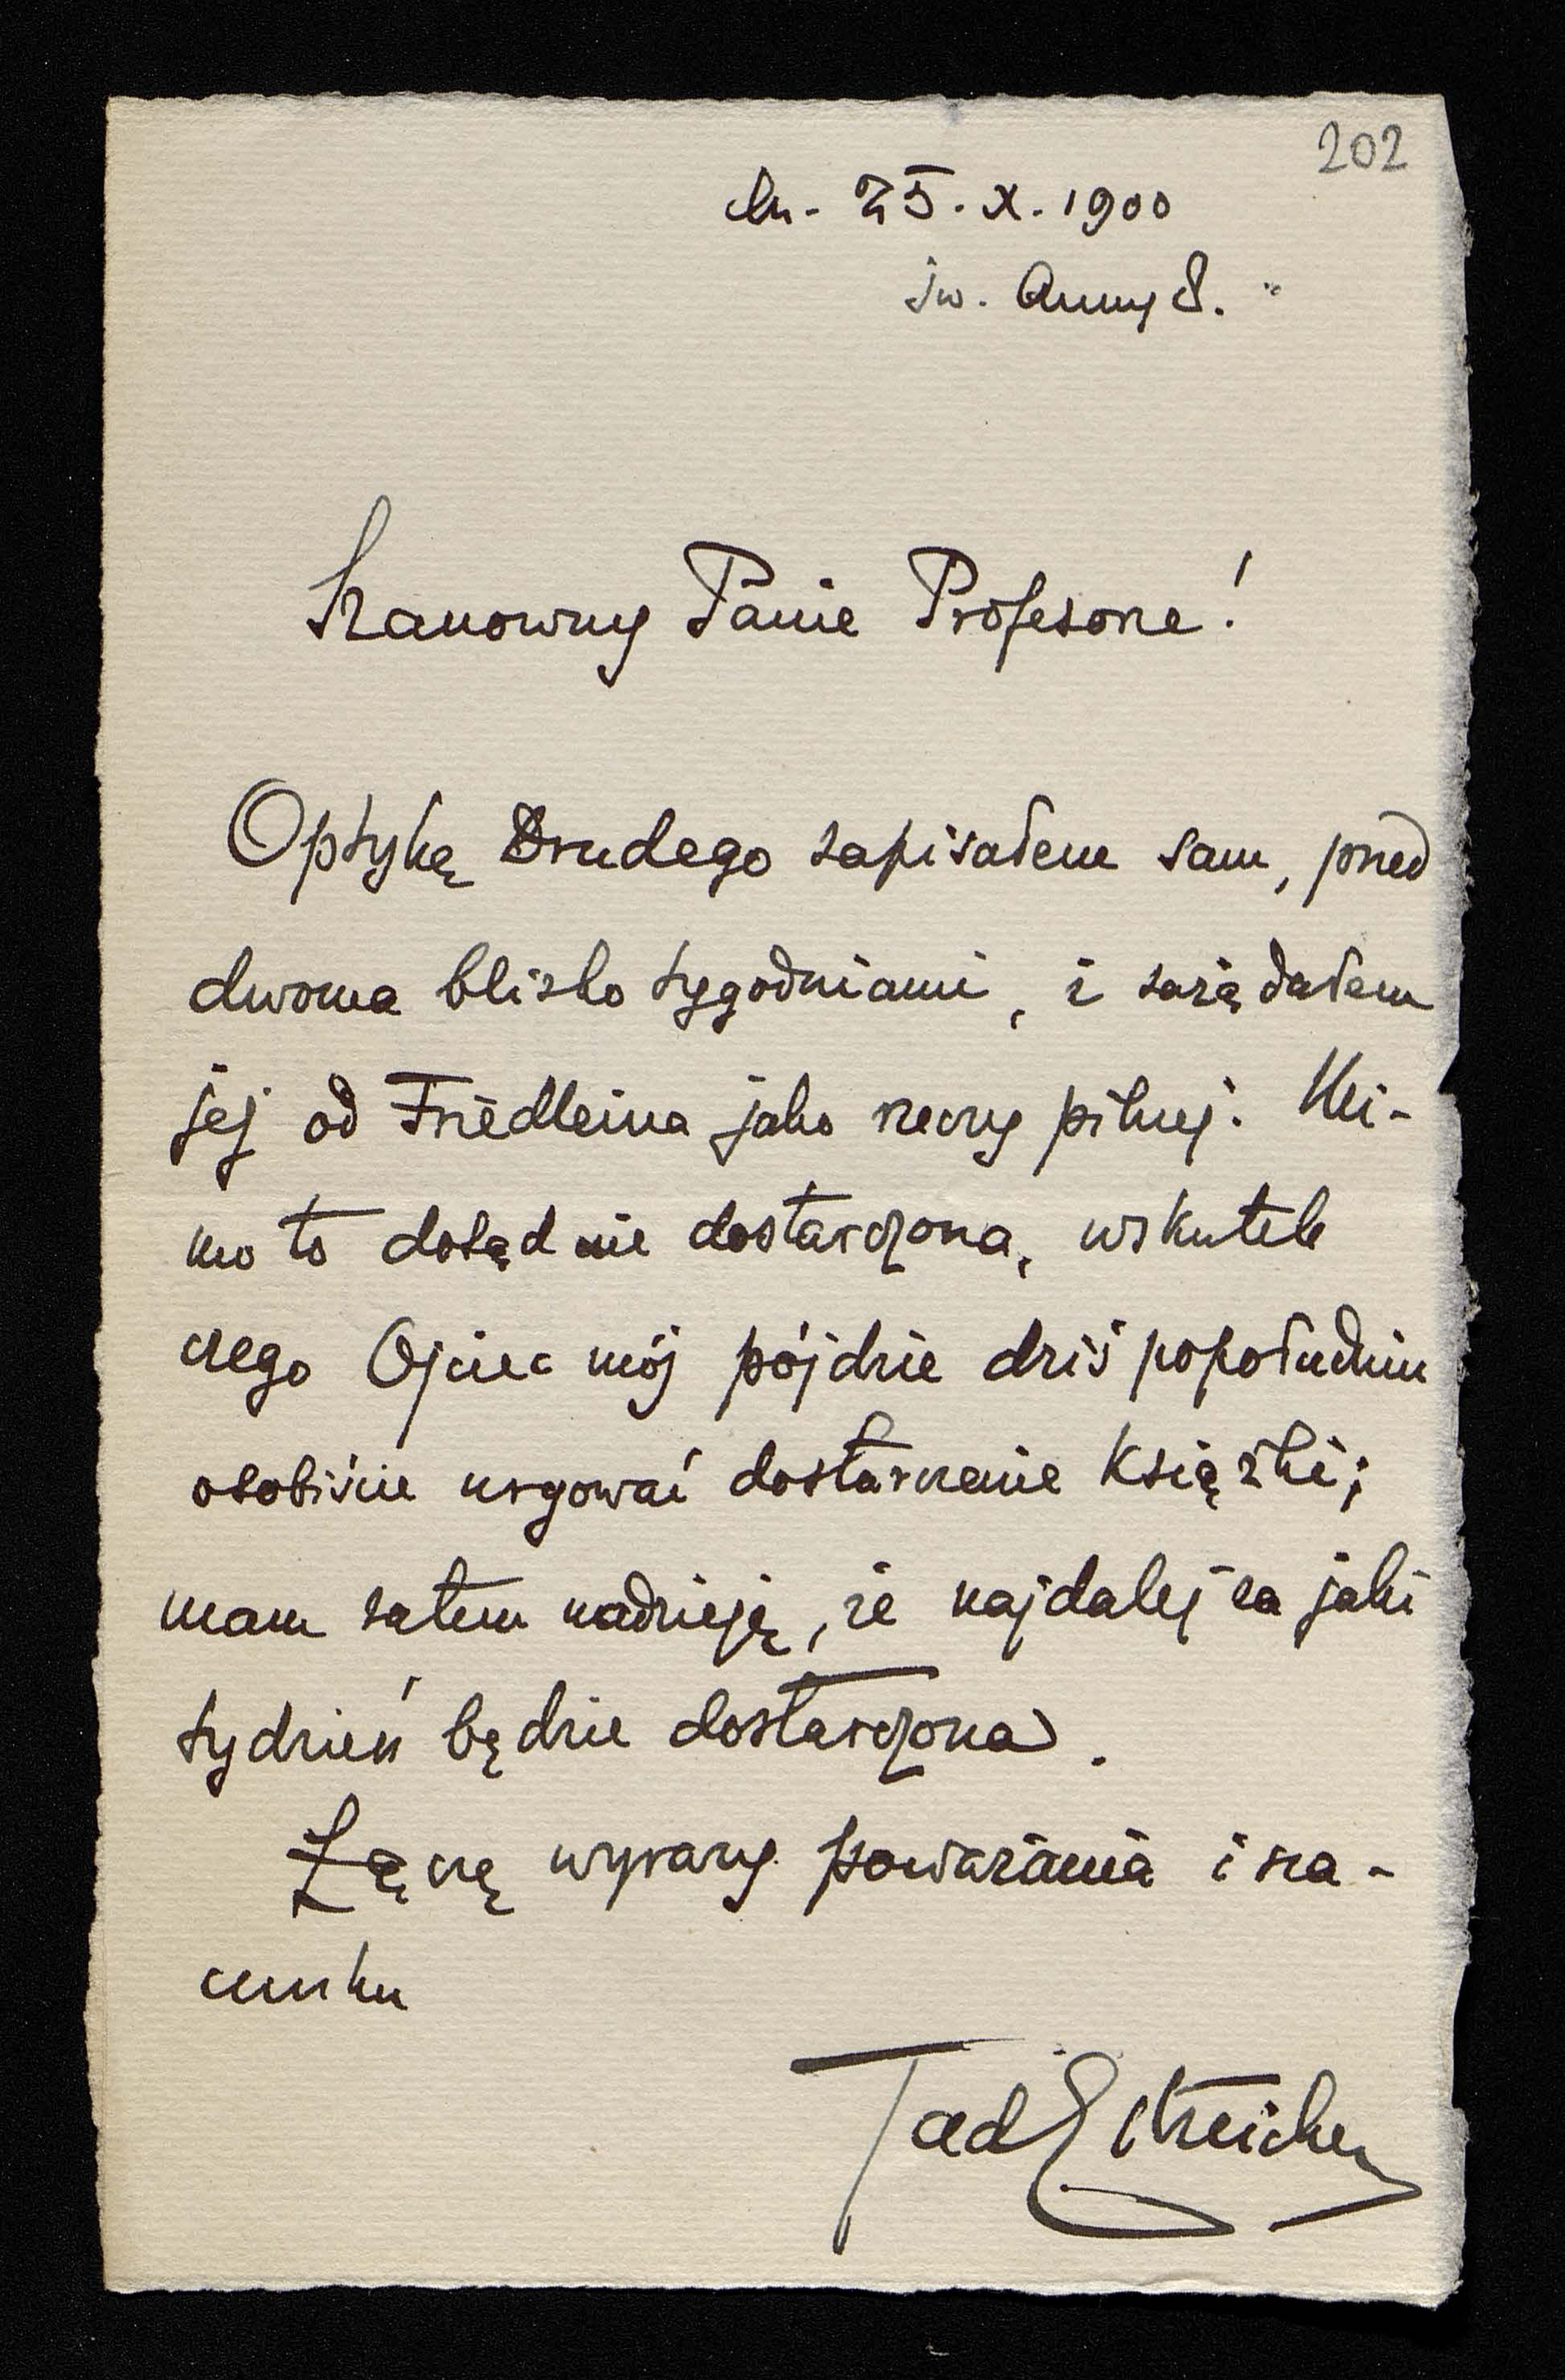 202
dn. 25. X. 1900
św. Anny 8.
Szanowny Panie Profesorze!
Optykę Drudego zapisałem sam, przed
dwoma blizko tygodniami, i zażądałem
jej od Friedleina jako rzeczy pilnej. Mi-
mo to dotąd nie dostarczona, wskutek
czego Ojciec mój pójdzie dziś popołudniu
osobiście urgować dostarczenie książki;
mam zatem nadzieję, że najdalej za jaki
tydzień będzie dostarczona.
Łączę wyrazy poważania i sza-
cunku
Tad Estreicher